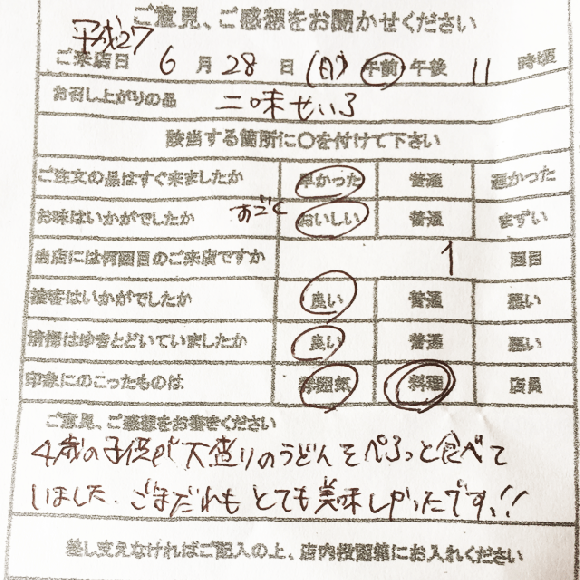 ご意見、ご感想をお聞かせください
平成27
ご来店日 6 月 28 日 (日) 午前 午後 11 時頃
お召し上がりの品 二味せいろ
該当する箇所に〇を付けて下さい
ご注文の品はすぐ来ましたか 早かった 普通 遅かった
お味はいかがでしたか すごく おいしい 普通 まずい
当店には何回目のご来店ですか 1 回目
接客はいかがでしたか 良い 普通 悪い
清掃はゆきとどいていましたか 良い 普通 悪い
印象にのこったものは 雰囲気 料理 店員
ご意見、ご感想をお書きください
4歳の子供が大盛りのうどんをぺろっと食べて
しまいました。ごまだれもとても美味しかったです!!
差し支えなければご記入の上、店内投函箱にお入れください